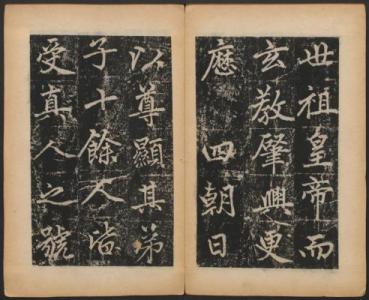 世祖皇帝而
玄教肇興更
歷四朝日
以尊顯其弟
子十餘人皆
受真人之號